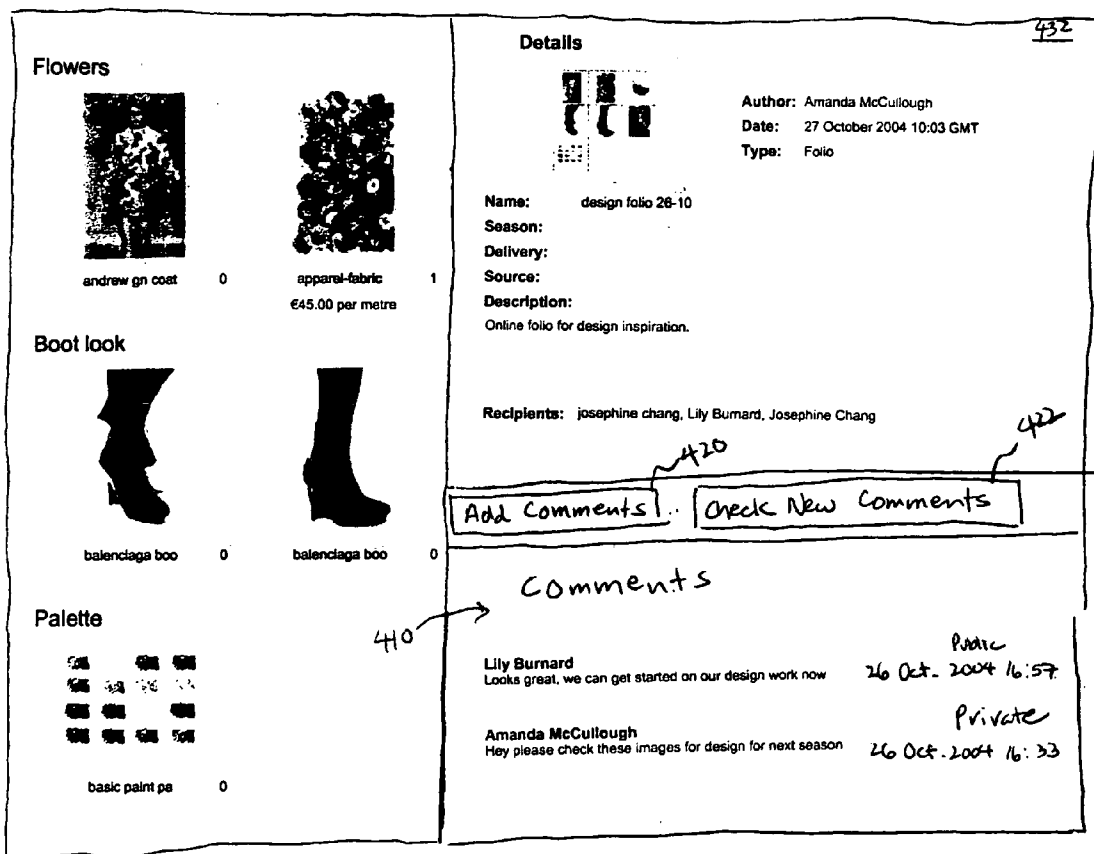 432
Flowers
andrew gn coat 0
apparel-fabric 1
€45.00 per metre
Boot look
balenciaga boo 0
balenciaga boo 0
Palette
basic paint pa 0
Details
Author: Amanda McCullough
Date: 27 October 2004 10:03 GMT
Type: Folio
Name: design folio 26-10
Season:
Delivery:
Source:
Description:
Online folio for design inspiration.
Recipients: josephine chang, Lily Burnard, Josephine Chang
420
422
Add Comments
Check New Comments
Comments
410
Public
Lily Burnard
Looks great, we can get started on our design work now
26 Oct. 2004 16:57
Private
Amanda McCullough
Hey please check these images for design for next season
26 Oct. 2004 16:33